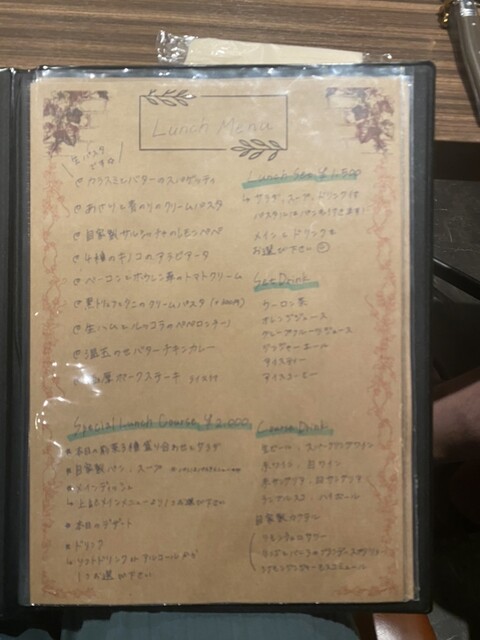 Lunch Menu
生パスタ
です
カラスミとバターのスパゲッティ
あさりと青のりのクリームパスタ
自家製サルシッチャのレモンペペ
4種のキノコのアラビアータ
ベーコンとホウレン草のトマトクリーム
黒トリュフとクリームパスタ
生ハムとルッコラのペペロンチーノ
バターチキンカレー
ポークステーキ ライス付
Lunch Set ¥1,500
サラダ、スープ、ドリンク付
メインとドリンクを
お選び下さい
Set Drink
ウーロン茶
オレンジジュース
グレープフルーツジュース
ジンジャーエール
アイスティー
アイスコーヒー
Special Lunch Course ¥2,000
本日の前菜 種盛り合わせとサラダ
自家製パン、スープ
メインディッシュ
上記メインメニューより1つお選び下さい
本日のデザート
ドリンク
ソフトドリンク or アルコールから
1つお選び下さい
Course Drink
生ビール、スパークリングワイン
赤ワイン、白ワイン
赤サングリア、白サングリア
ハイボール
自家製カクテル
リモンチェロサワー